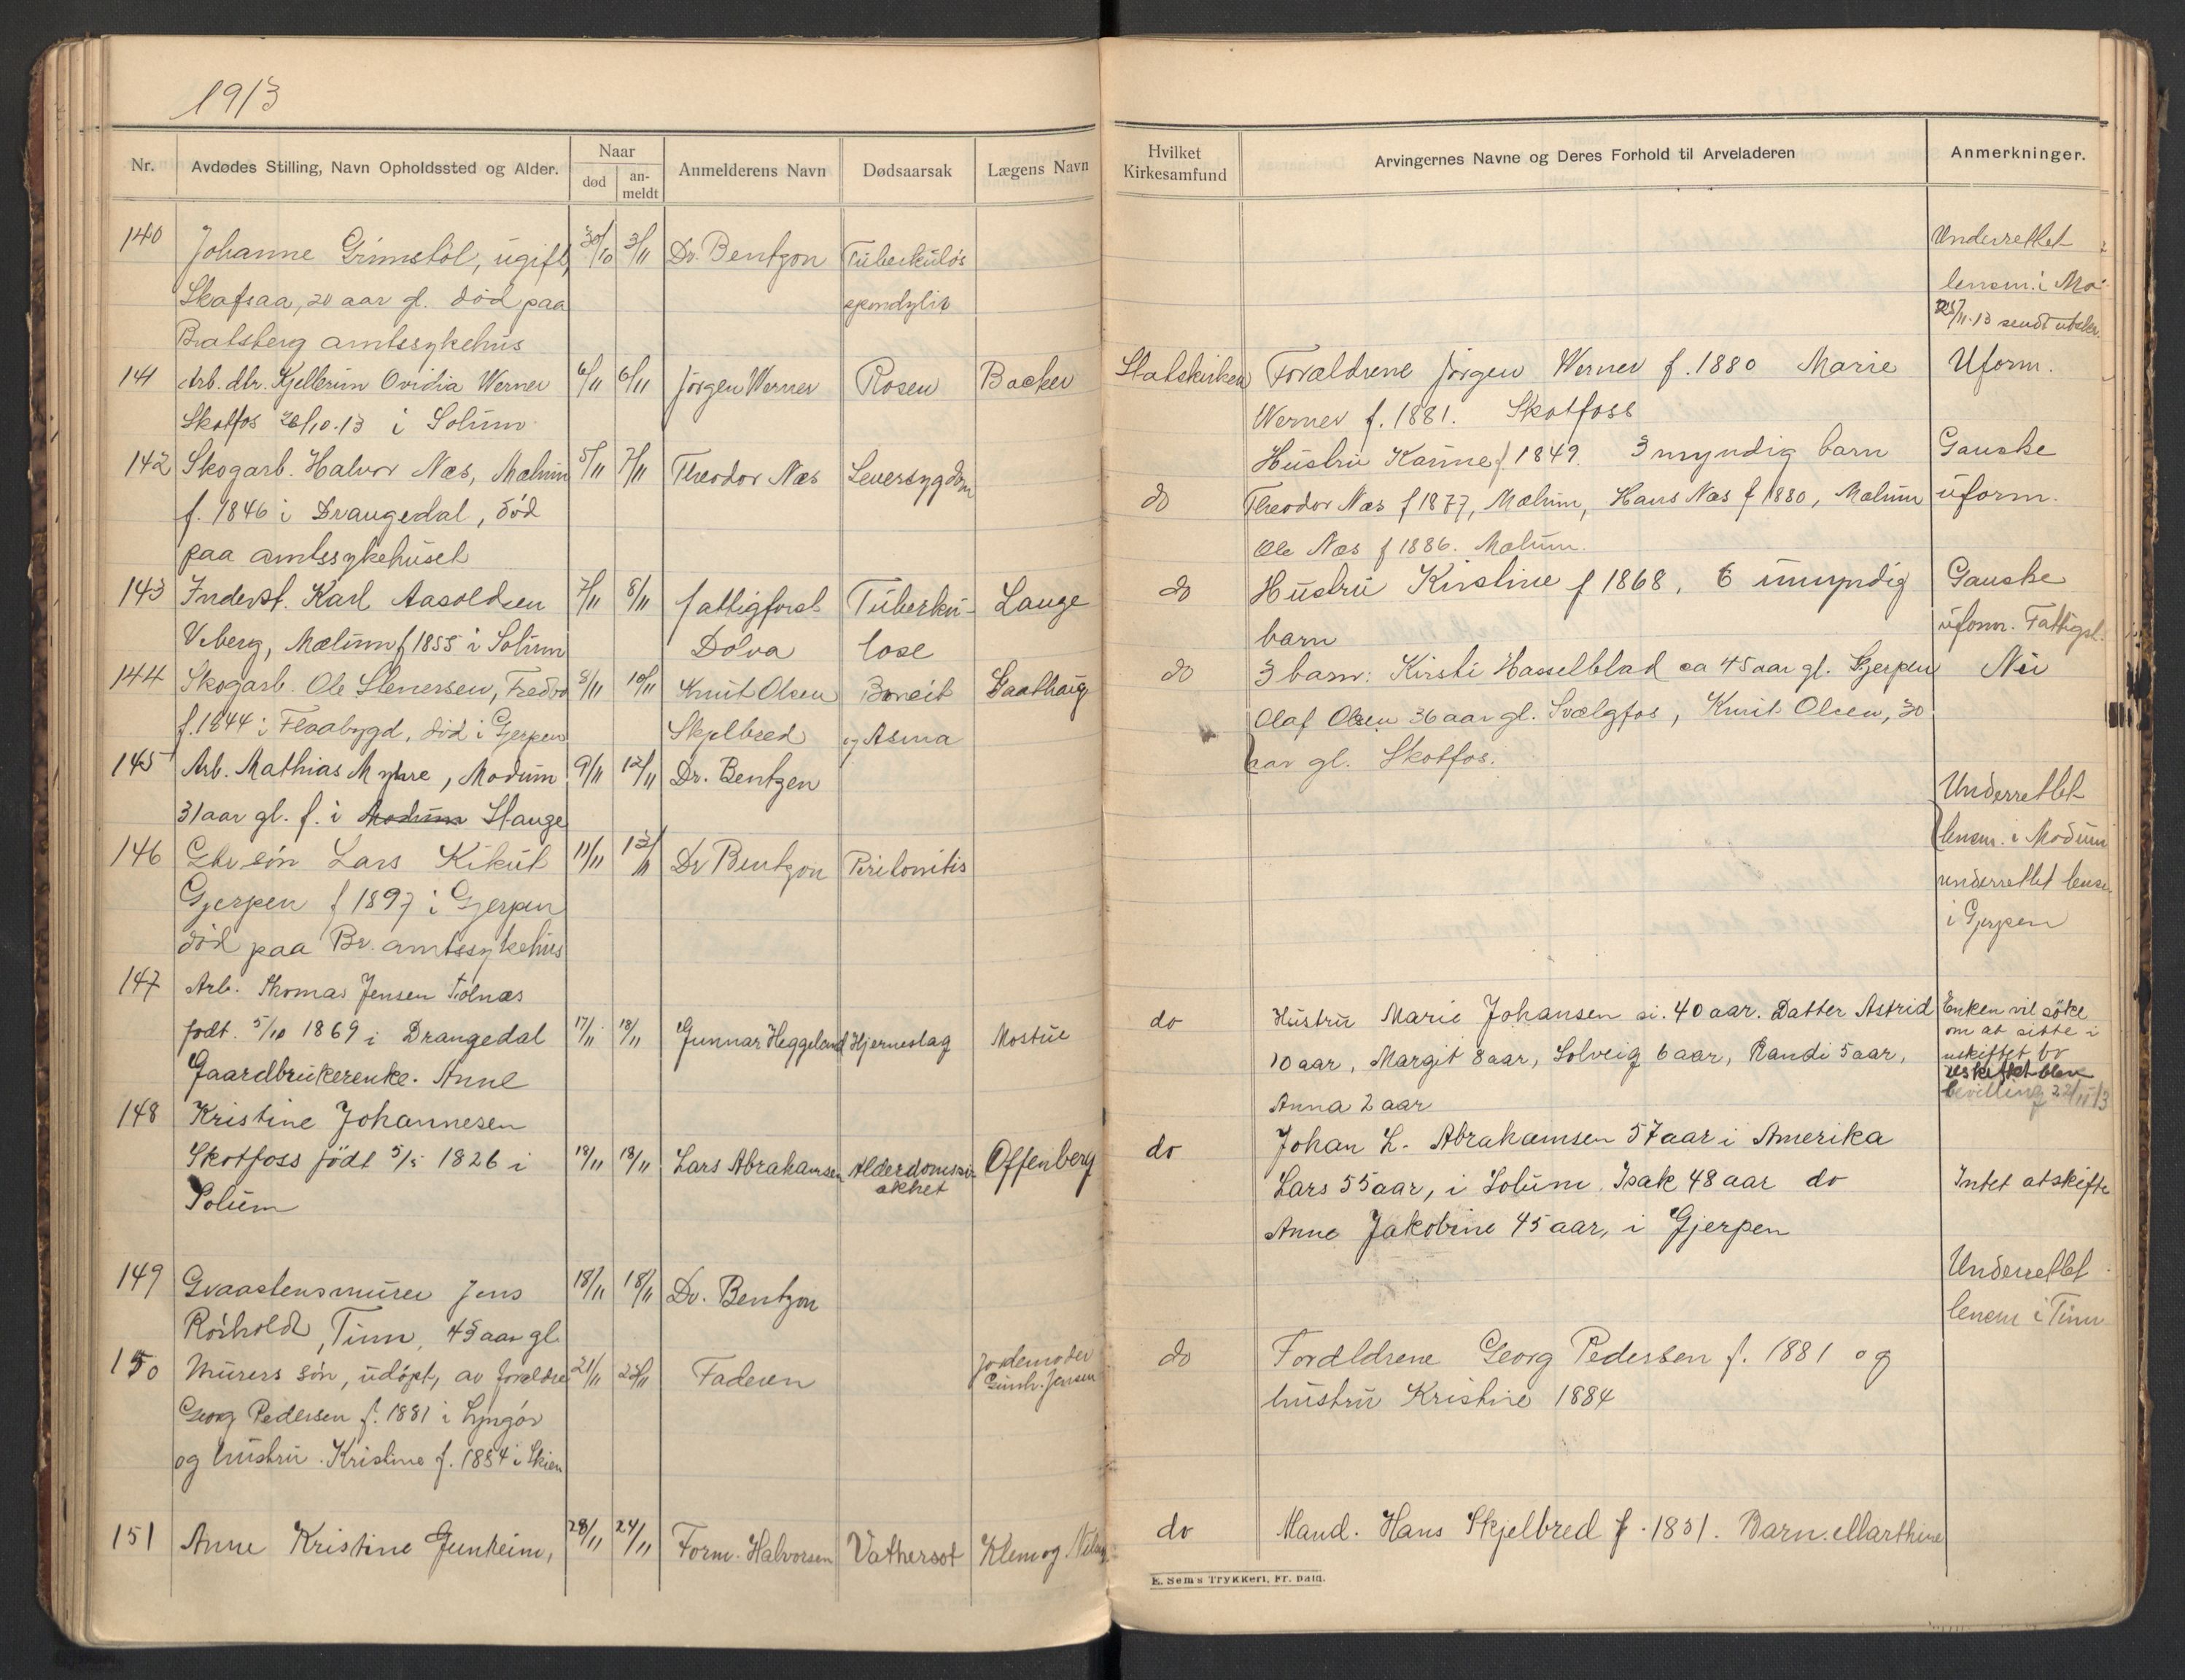 1913
Nr. Avdødes Stilling, Navn Opholdssted og Alder. Naar død an-meldt Anmelderens Navn Dødsaarsak Lægens Navn
Hvilket Kirkesamfund Arvingernes Navne og Deres Forhold til Arveladeren Anmerkninger.
140 Johanne Grimstöl, ugift, 30/10 3/11 Dr. Bentzon Tüberkülös Underrettet
Skafsaa, 20 aar gl. död paa spondylit lensm. i Mo
Bratsberg amtssykehus /11-13 sendt
141 Arb. dtr. Kjellerun Ovidia Werner 6/11 6/11 Jörgen Werner Rosen Backer Statskirken Forældrene Jörgen Werner f. 1880 Marie Uform.
Skotfos 26/10.13 i Solum Werner f. 1881. Skotfoss
142 Skogarb. Halvor Næs, Mælum 5/11 7/11 Theodor Næs Leversygdom Hustru Karine f. 1849. 3 myndig barn Ganske
f. 1846 i Drangedal, död do Theodor Næs f 1877, Mælum, Hans Næs f 1880, Mælum uform.
paa amtssykehuset Ole Næs f 1886. Mælum.
143 Inderst. Karl Aasoldsen 7/11 8/11 fattigforst. Tüberkü- Lange do Hustru Kirstine f 1868, 6 umyndig Ganske
Veberg, Mælum f 1855 i Solum Dolva lose barn uform. Fattigst.
144 Skogarb. Ole Stenersen, 8/11 10/11 Knut Olsen Gaathaug do 3 barn: Kirsti Hasselblad ca 45 aar gl. Gjerpen Nei
f. 1844 i Flaabygd, död i Gjerpen Skjelbred og Asma Olaf Olsen 36 aar gl. Svælgfos, Knut Olsen, 30
aar gl. Skotfos.
145 Arb. Mathias Myhre, Modum 9/11 12/11 Dr. Bentzen Underrettet
31 aar gl. f. i Modum Stange lensm. i Modum
146 Gbr sön Lars Kikut 11/11 13/11 Dr Bentzon Peritonitis underrettet lensm.
Gjerpen f 1897 i Gjerpen i Gjerpen
död paa Br. amtssykehus
147 Arb. Thomas Jensen Tolnæs
født. 5/10 1869 i Drangedal 17/11 18/11 Gunnar Heggeland Hjerneslag Mostue do Hustru Marie Johansen ci. 40 aar. Datter Astrid Enken vil söke
om at sitte i
10 aar, Margit 8 aar, Solveig 6 aar, Randi 5 aar, uskiftet bo
Anna 2 aar bevilling 22/11 13
Gaardbrukerenke. Anne
148 Kristine Johannesen Johan L. Abrahamsen 57 aar i Amerika
Skotfoss födt 5/5 1826 i 18/11 18/11 Lars Abrahamsen Alderdomssv- Offenberg do Lars 55 aar, i Solum. Isak 48 aar do Intet at skifte
akhet
Solum Anne Jakobine 45 aar, i Gjerpen
149 Graastensmurer Jens 18/11 18/11 Dr. Bentzon Underrettet
Rösholdt, Tinn, 45 aar gl. lensm i Tinn
150 Murers sön, udöpt, av foreldre 21/11 22/11 Faderen Jordemoder Gunh. Jensen do Forældrene Georg Pedersen f. 1881 og
Georg Pedersen f. 1881 i Lyngör hustru Kristine 1884
og hustru Kristine f. 1884 i Skien
151 Anne Kristine Gunheim, 28/11 24/11 Form. Halvorsen Vathersot Klem og do Mand. Hans Skjelbred f. 1831. Barn. Marthine
E. Sem's Trykkeri, Fr. hald.